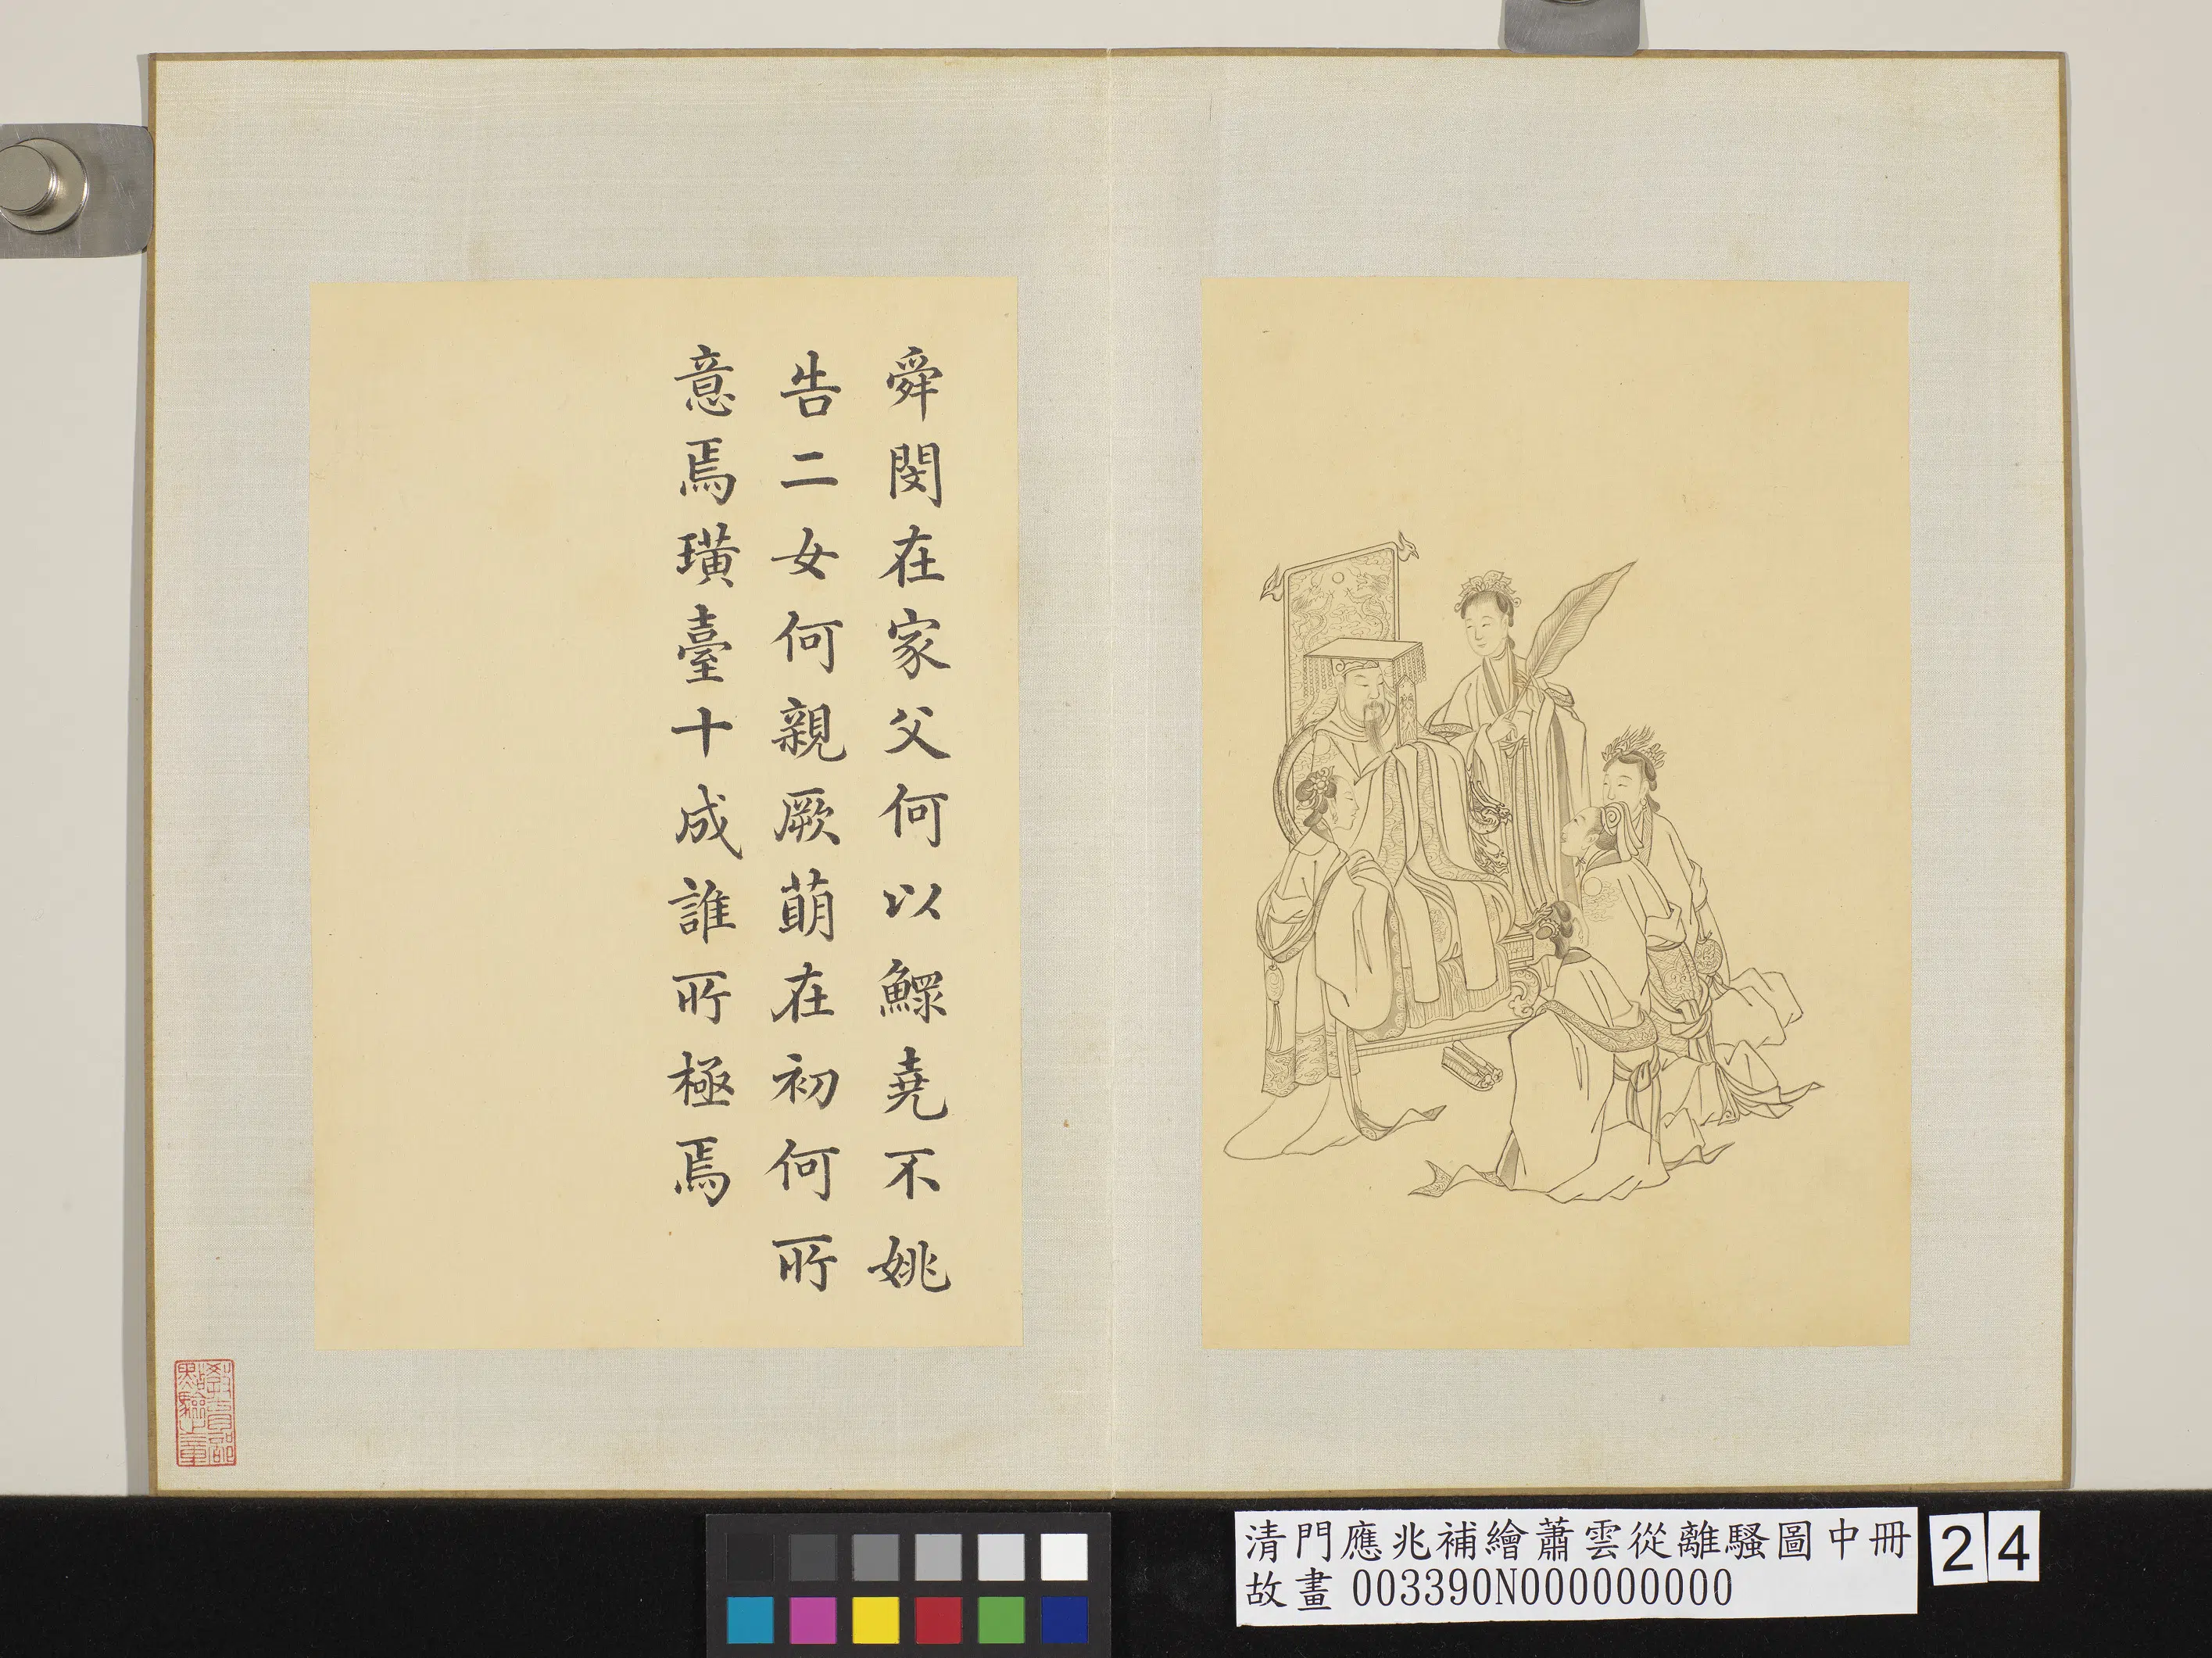 舜閔在家父何以鰥堯不姚
告二女何親厥萠在初何所
意焉璜臺十成誰所極焉
教育部點驗之章
清門應兆補繪蕭雲從離騷圖中冊
故畫 003390N000000000
24